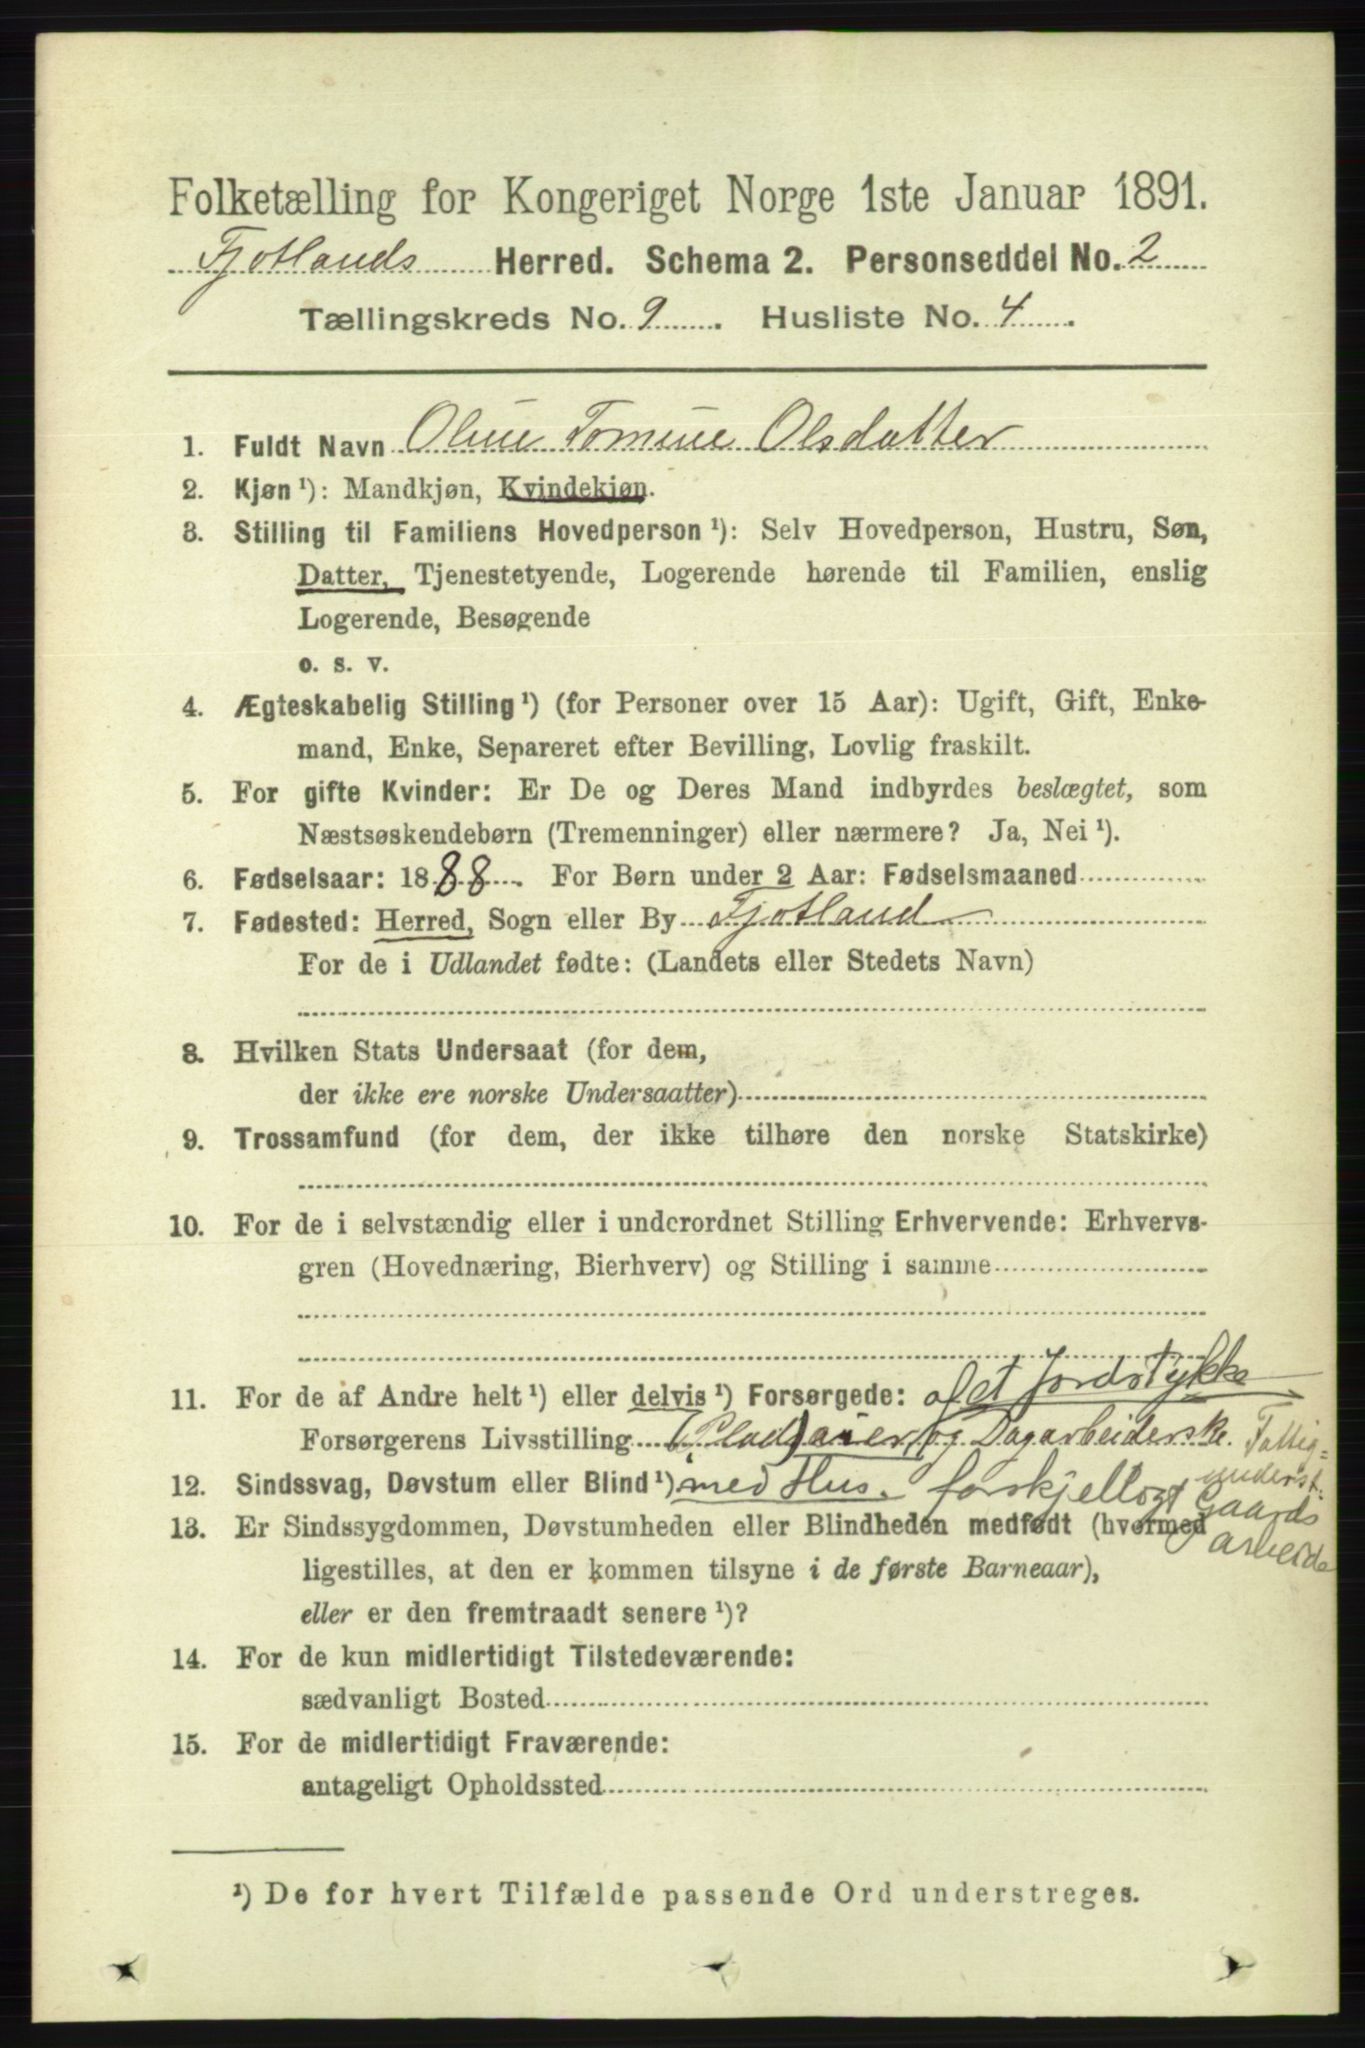 Folketælling for Kongeriget Norge 1ste Januar 1891.
Fjotlands Herred. Schema 2. Personseddel No. 2
Tællingskreds No. 9. Husliste No. 4.
1. Fuldt Navn Oline Tomine Olsdatter
2. Kjøn ¹): Mandkjøn, Kvindekjøn.
3. Stilling til Familiens Hovedperson ¹): Selv Hovedperson, Hustru, Søn,
Datter, Tjenestetyende, Logerende hørende til Familien, enslig
Logerende, Besøgende
o. s. v.
4. Ægteskabelig Stilling ¹) (for Personer over 15 Aar): Ugift, Gift, Enke-
mand, Enke, Separeret efter Bevilling, Lovlig fraskilt.
5. For gifte Kvinder: Er De og Deres Mand indbyrdes beslægtet, som
Næstsøskendebørn (Tremenninger) eller nærmere? Ja, Nei ¹).
6. Fødselsaar: 1888. For Børn under 2 Aar: Fødselsmaaned
7. Fødested: Herred, Sogn eller By Fjotland
For de i Udlandet fødte: (Landets eller Stedets Navn)
8. Hvilken Stats Undersaat (for dem,
der ikke ere norske Undersaatter)
9. Trossamfund (for dem, der ikke tilhøre den norske Statskirke)
10. For de i selvstændig eller i underordnet Stilling Erhvervende: Erhvervs-
gren (Hovednæring, Bierhverv) og Stilling i samme
11. For de af Andre helt ¹) eller delvis ¹) Forsørgede: af et Jordstykke
Forsørgerens Livsstilling (Plads)eier og Dagarbeiderske. Fattig-
underst.
12. Sindssvag, Døvstum eller Blind ¹) med Hus. forskjelligt Gaards
arbeide
13. Er Sindssygdommen, Døvstumheden eller Blindheden medfødt (hvormed
ligestilles, at den er kommen tilsyne i de første Barneaar),
eller er den fremtraadt senere ¹)?
14. For de kun midlertidigt Tilstedeværende:
sædvanligt Bosted
15. For de midlertidigt Fraværende:
antageligt Opholdssted
¹) De for hvert Tilfælde passende Ord understreges.